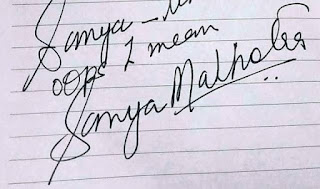 Sanya -
oops I mean
Sanya Malhotra